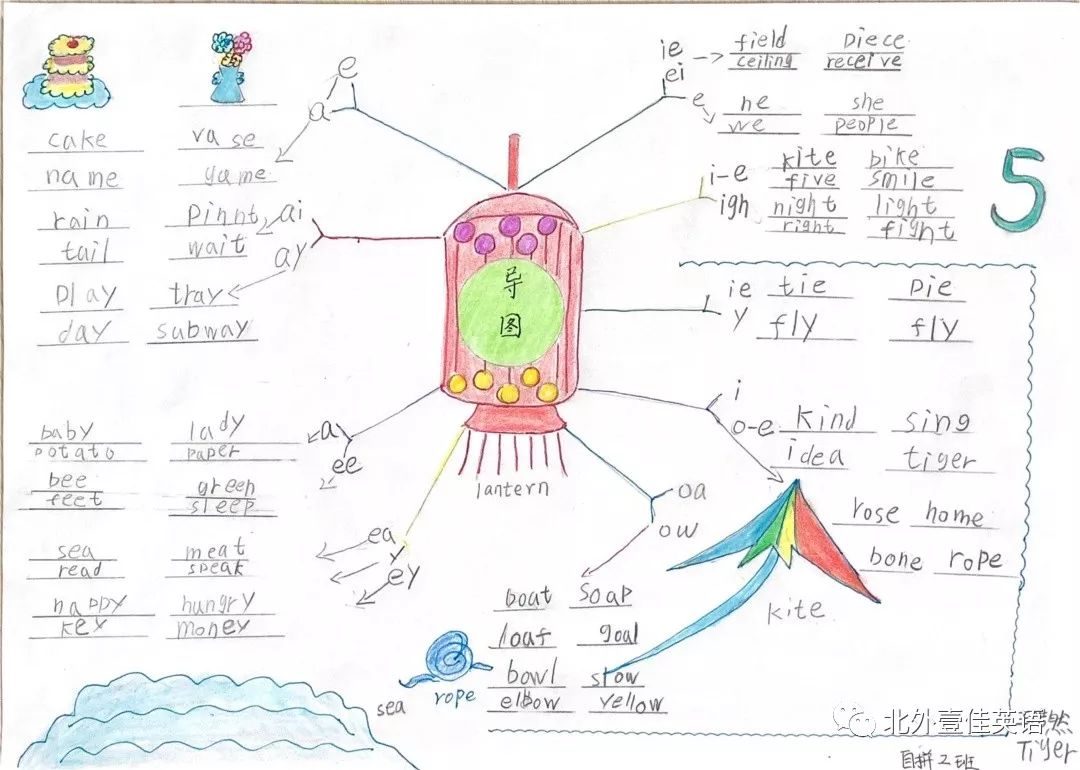 a e
cake va se
name game
ai
rain Pinnt
tail wait
ay
Play tray
day subway
a
baby lady
potato paper
ee
bee green
feet sleep
ea
sea meat
read speak
y
ey
happy hungry
key money
导
图
lantern
ie field piece
ei ceiling receive
e he she
we people
i-e kite bike
five smile
igh night light
right fight
5
ie tie pie
y fly fly
i
o-e kind sing
idea tiger
rose home
bone rope
kite
oa
ow
boat soap
loaf goal
bowl slow
elbow yellow
rope
sea
北外壹佳英语
Tiger
自拼2班